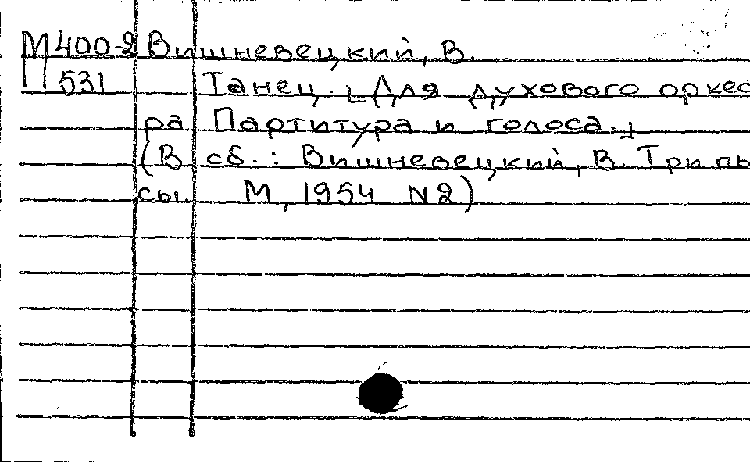 М400-2 Вишневецкий, В.
П 531 Танец. [Для духового оркес
ра Партитура и голоса.]
(В сб.: Вишневецкий, В. Три пь
сы. М, 1954 N2)